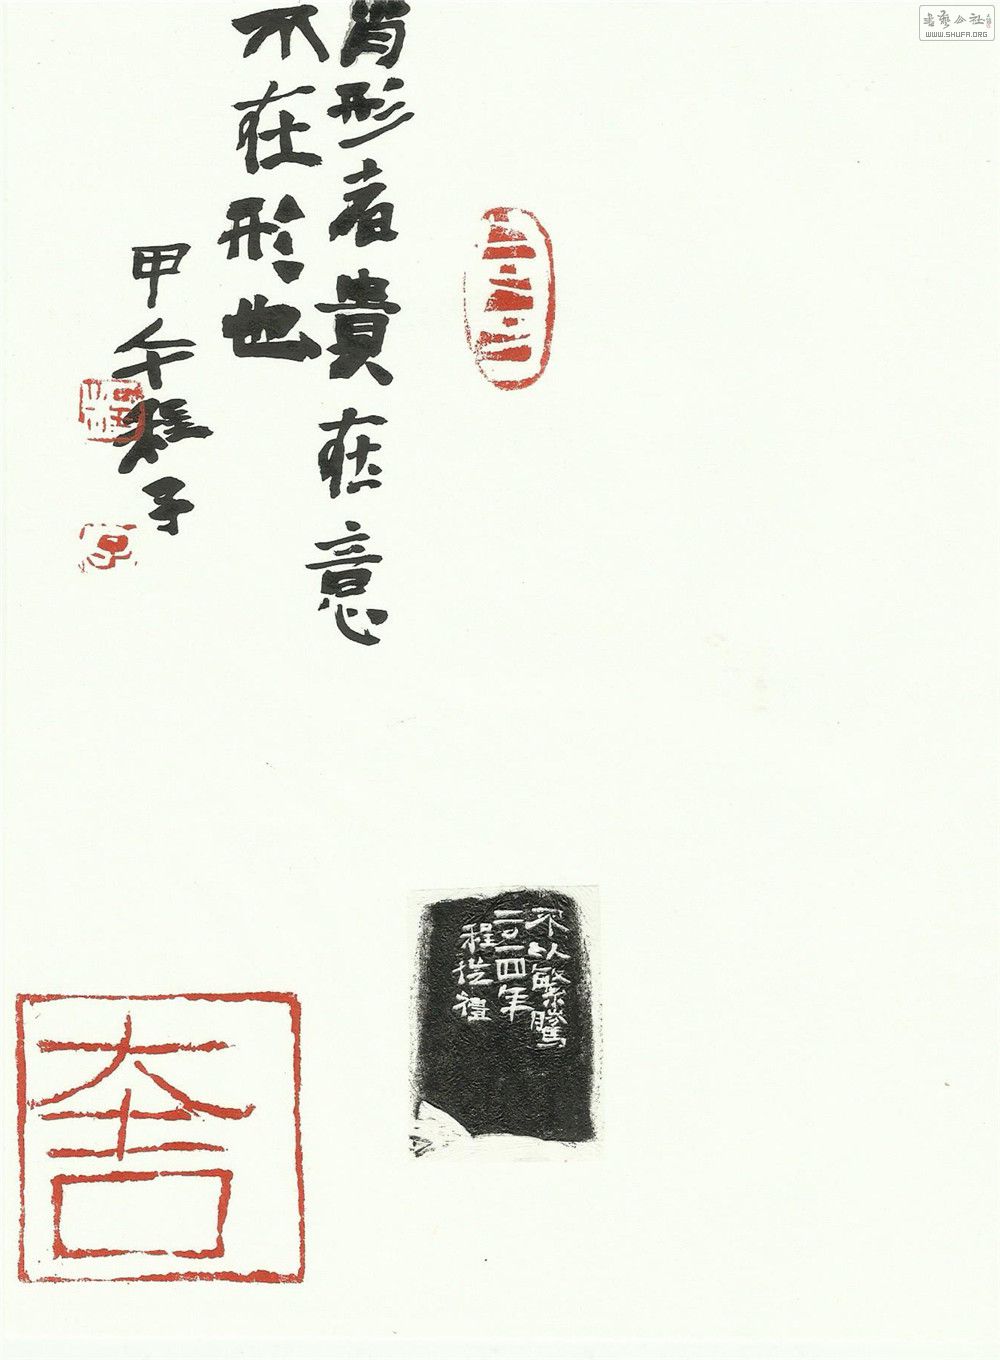 肖形者貴在意
不在形也
甲午程子
程
子
不以繁勝
二〇一四年
程
書藝公社
WWW.SHUFA.ORG